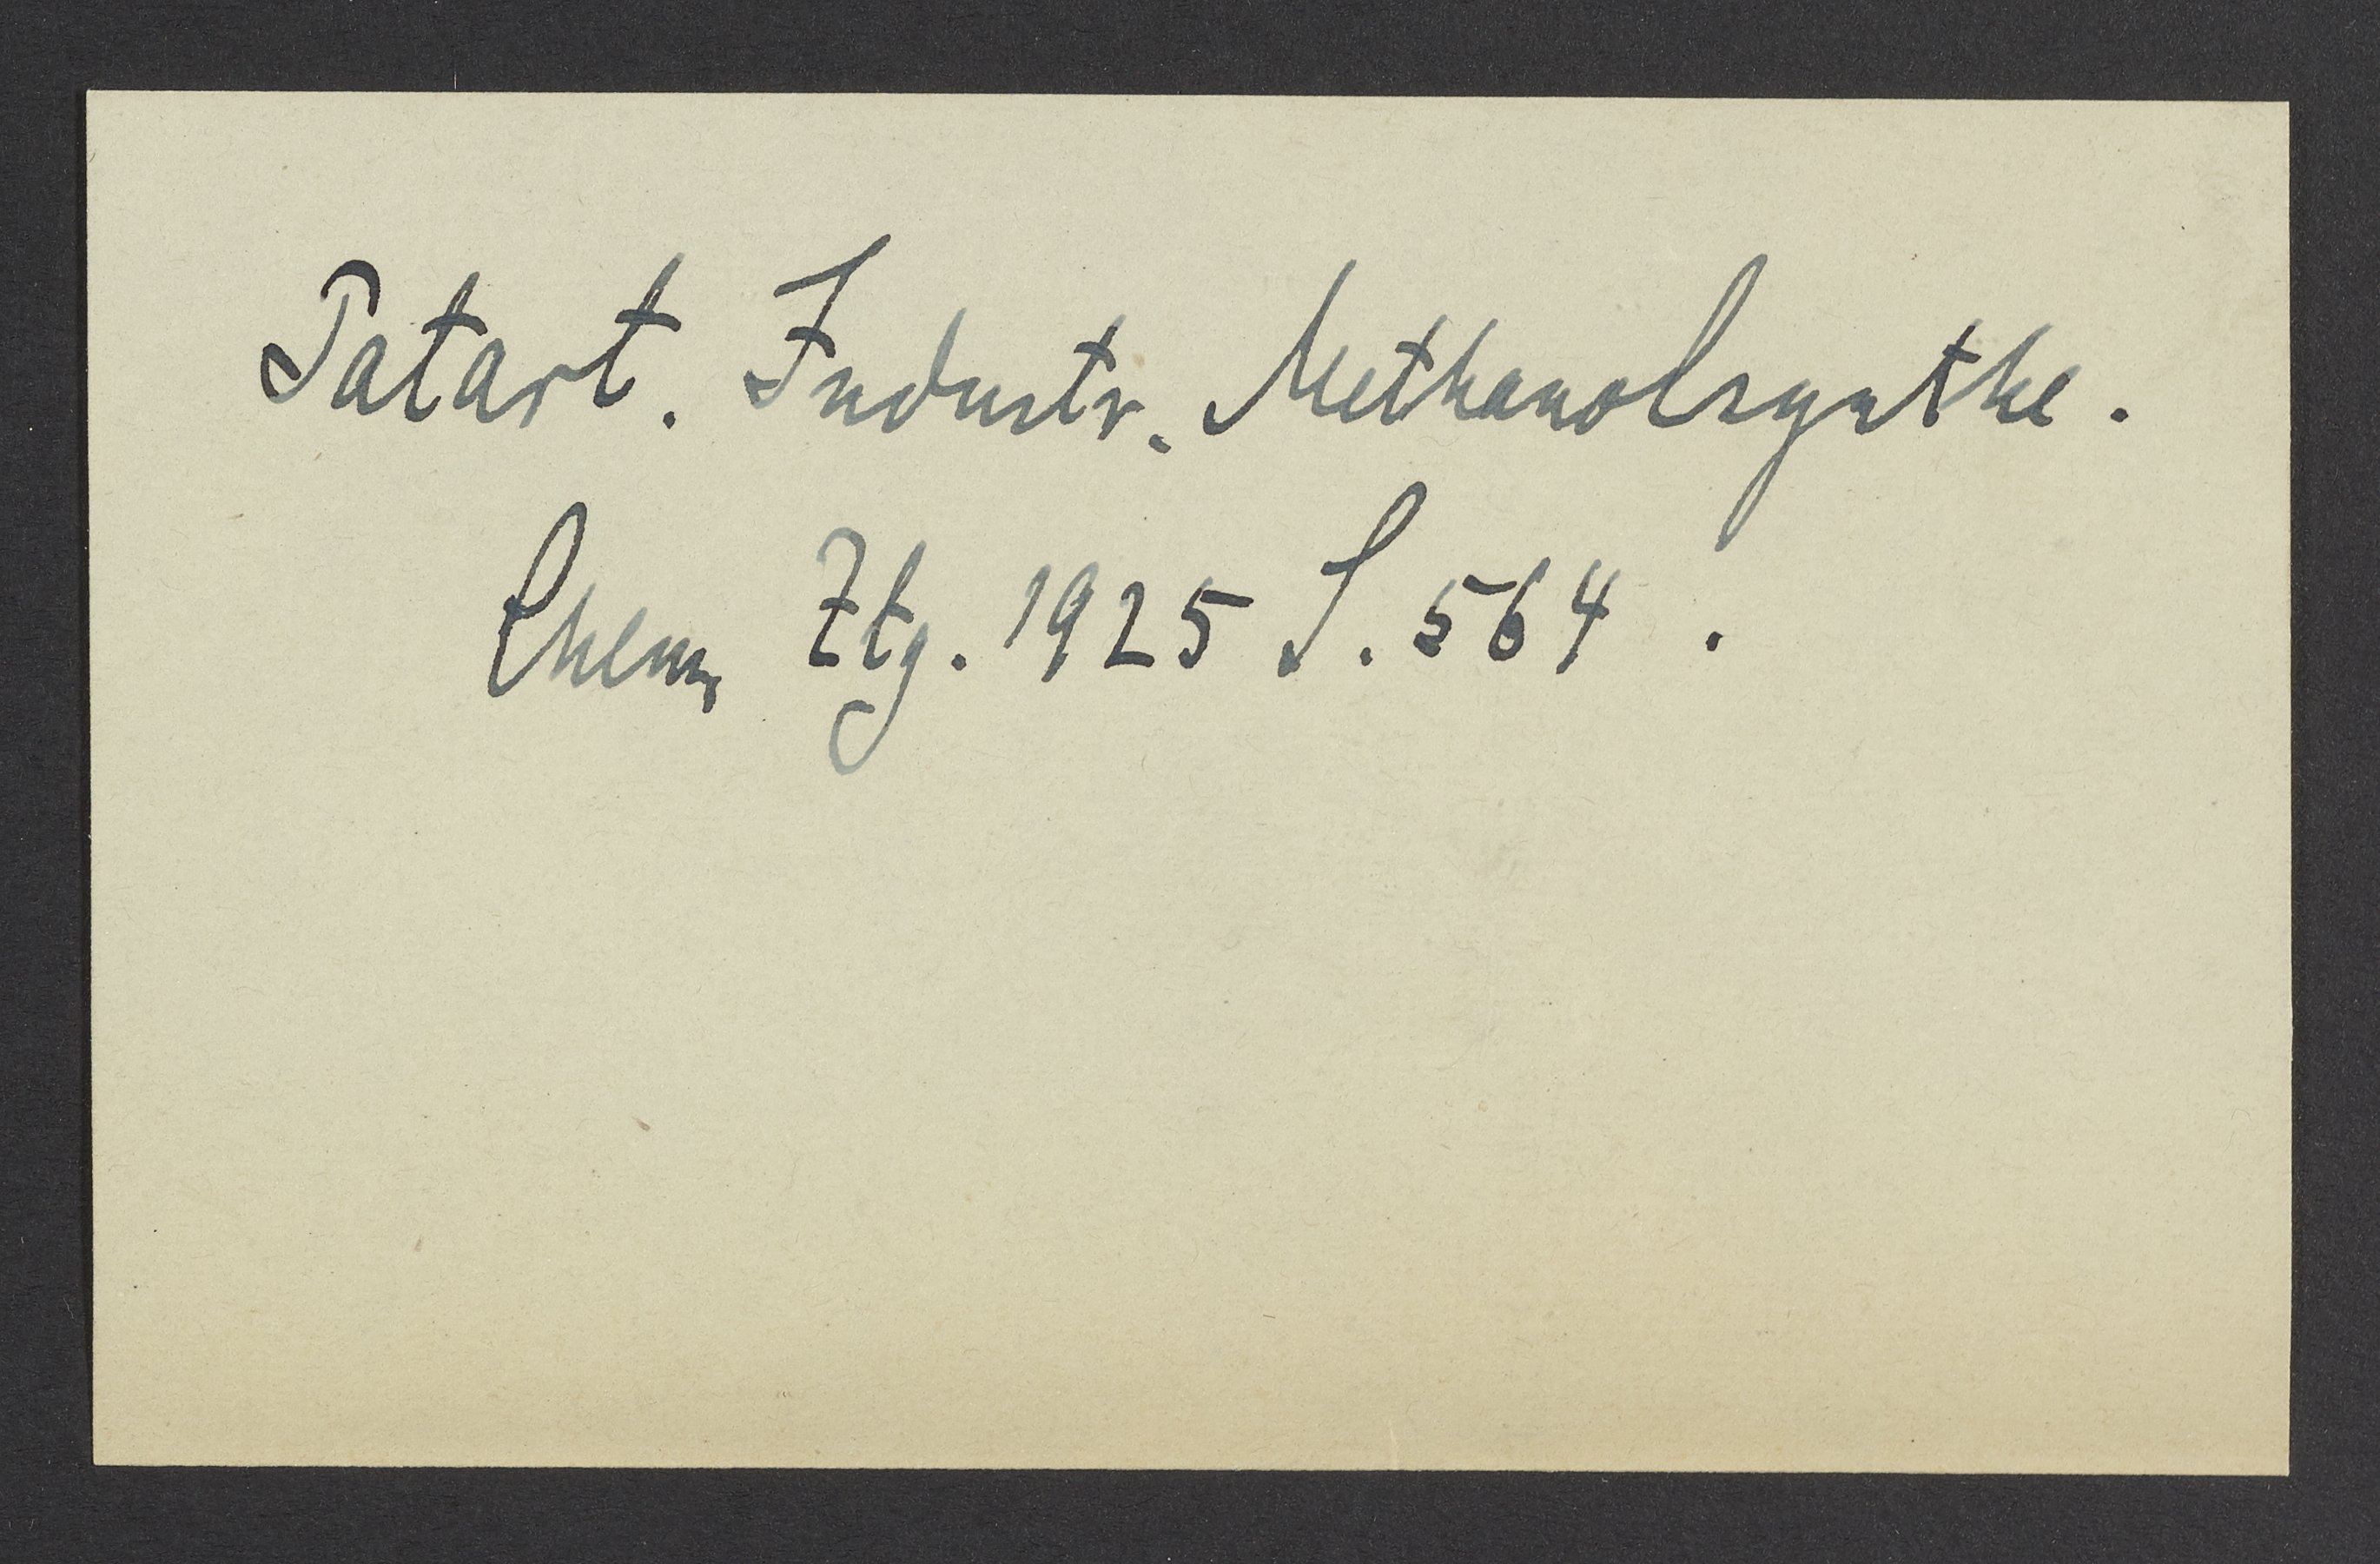 Patart. Industr. Methanolsynthe.
Chem. Ztg. 1925 S. 564.